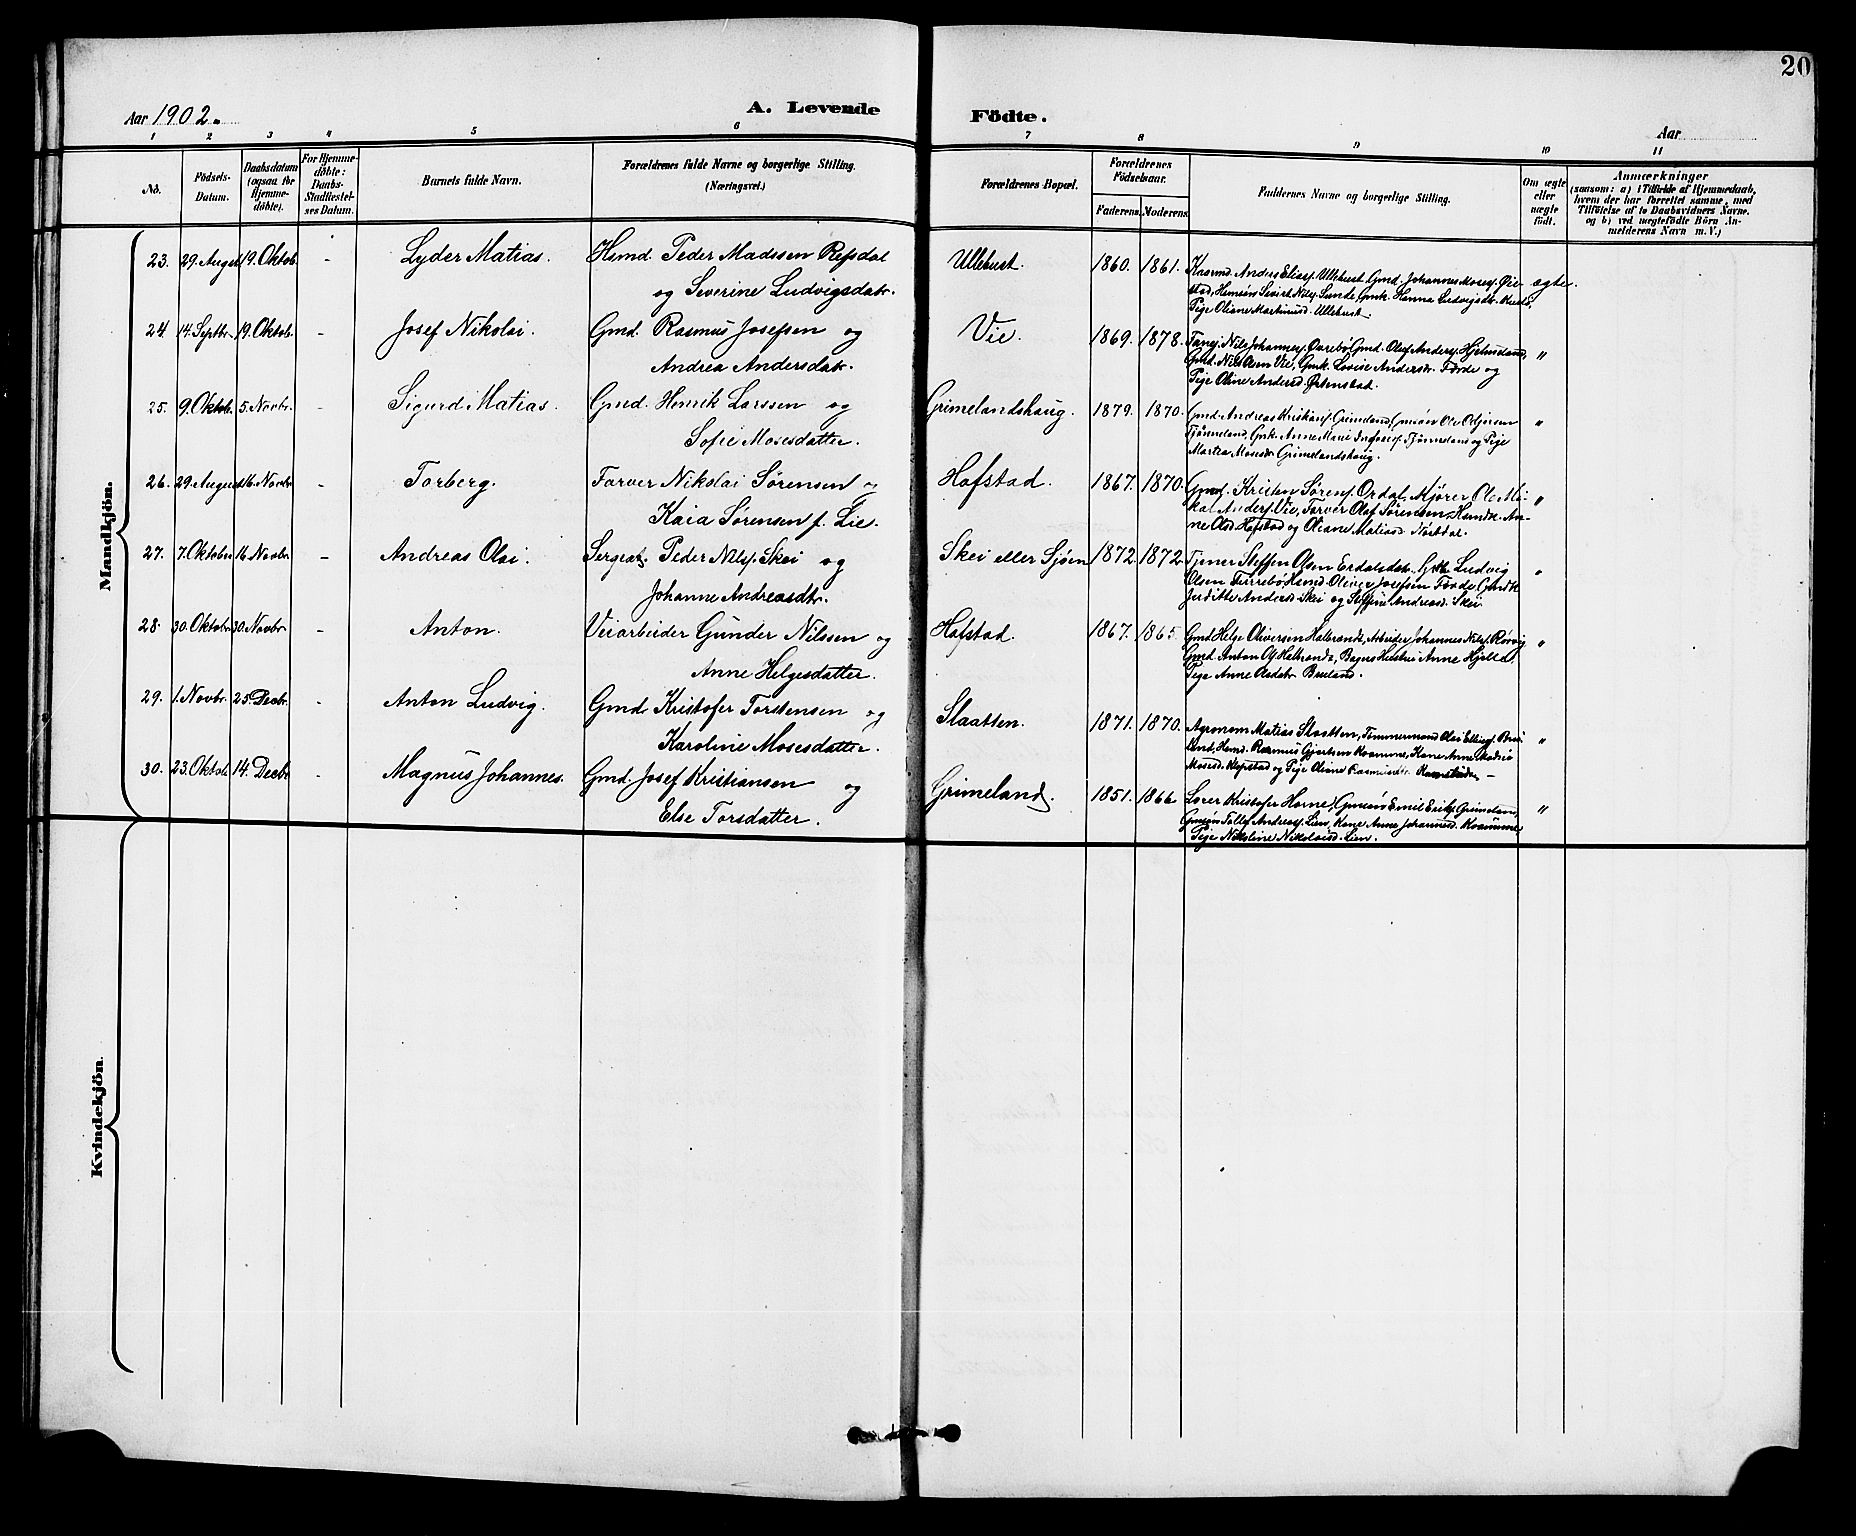 20
Aar 1902.
A. Levende Födte.
Aar
1 2 3 4 5 6 7 8 9 10 11
No.
Födsels-Datum.
Daabsdatum (ogsaa for Hjemme-döbte).
For Hjemme-döbte: Daabs-Stadfæstel-ses Datum.
Barnets fulde Navn.
Forældrenes fulde Navne og borgerlige Stilling. (Næringsvei.)
Forældrenes Bopæl.
Forældrenes Födselsaar.
Faderens. Moderens.
Faddernes Navne og borgerlige Stilling.
Om ægte eller uægte födt.
Anmærkninger
(saasom: a) i Tilfælde af Hjemmedaab,
hvem der har forrettet samme, med
Tilföielse af to Daabsvidners Navne.
og b) ved uægtefödte Börn An-
melderens Navn m. V.)
Mandkjön.
23. 29. August 19. Oktob. - Lyder Matias. Hsmd. Peder Madssen Refsdal
og Severine Ludvigsdatr.
Ullebust. 1860. 1861.
Anders Eliasf. Ullebust Gmd. Johannes Mosesf. Øie-
stad, Sivert Nilsf. Sunde, Gmk. Hanna Ludvigsdtr.
Pige Oliane Martinusd. Ullebust.
ægte.
24 14. Septbr. 19. Oktob. - Josef Nikolai. Gmd. Rasmus Josefsen og
Andrea Andersdatr.
Vie. 1869. 1878.
Nils Johannesf. Gmd. Olaf Andersf. Hjelmeland,
Gmd. Nils Vie, Gmk. Lovise Andersdr. Førde og
Pige Oline Andersd.
"
25. 9. Oktob. 5. Novbr. - Sigurd Matias. Gmd. Henrik Larssen og
Sofie Mosesdatter.
Grimelandshaug. 1879. 1870.
Gmd. Andreas Kristianf. Grimeland, Gmsøn Ole
Tjønneland, Gmk. Anne Marie Tjønneland og Pige
Martea Mosesdr. Grimelandshaug.
"
26. 29. August 16. Novbr - Torberg. Farver Nikolai Sørensen og
Kaia Sørensen f. Lie.
Hafstad. 1867. 1870.
Gmd. Kristen Sørenf. Ordal, Ole Mi-
kal Andersf. Vie, Farver Olaf Sørensen, Hsmdk. An-
ne Olsd. Hafstad og Oliane Matiasd.
"
27. 7. Oktober 16. Novbr - Andreas Olai. Sergeat. Peder Nilsf. Skei og
Johanne Andreasdtr.
Skei eller Sjøen 1872. 1872.
Tjener Steffen Olsen Erdalsdal, Ludvig
Olsen Hsmd. Oliver Josefsen Førde,
Anders Skei og Steffine Andreasd. Skei.
"
28. 30. Oktobr 30. Novbr - Anton. Veiarbeider Gunder Nilssen og
Anne Helgesdatter.
Hafstad. 1867. 1865.
Gmd. Helge Oliversen Halbrands, Arbeider Johannes Nilsf. Rørvig
Gmd. Anton Halbrands, Anne
Pige Anne Olsdtr. Bruland.
"
29. 1. Novbr. 25. Decbr. - Anton Ludvig. Gmd. Kristofer Torstensen og
Karoline Mosesdatter.
Slaatten. 1871. 1870.
Agronom Matias Slaatten, Tømmermand Olai Ellingf. Bru-
land, Hsmd. Rasmus Gjertsen Kvamme, Kone Anne
Mosesd. Klopstad og Pige Oliane Rasmusdtr.
"
30. 23. Oktob. 14. Decbr - Magnus Johannes. Gmd. Josef Kristiansen og
Else Torsdatter.
Grimeland. 1851. 1866
Lærer Kristofer Horne, Gmsøn Emil Eriksf. Grimeland,
Gmsøn Tollef Andreasf. Lien, Kone Anne Johannesd. Kvamme,
Pige Nikoline Nikolaisd. Lien.
"
Kvindekjön.